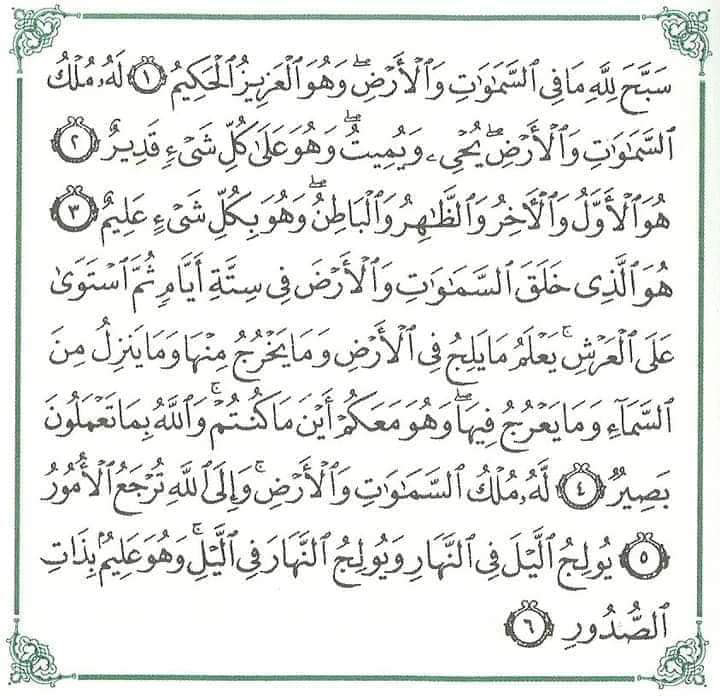 سَبَّحَ لِلَّهِ مَا فِى ٱلسَّمَٰوَٰتِ وَٱلْأَرْضِۖ وَهُوَ ٱلْعَزِيزُ ٱلْحَكِيمُ ١ لَهُۥ مُلْكُ
ٱلسَّمَٰوَٰتِ وَٱلْأَرْضِۖ يُحْىِۦ وَيُمِيتُۖ وَهُوَ عَلَىٰ كُلِّ شَىْءٍ قَدِيرٌ ٢
هُوَ ٱلْأَوَّلُ وَٱلْءَاخِرُ وَٱلظَّٰهِرُ وَٱلْبَاطِنُۖ وَهُوَ بِكُلِّ شَىْءٍ عَلِيمٌ ٣
هُوَ ٱلَّذِى خَلَقَ ٱلسَّمَٰوَٰتِ وَٱلْأَرْضَ فِى سِتَّةِ أَيَّامٍ ثُمَّ ٱسْتَوَىٰ
عَلَى ٱلْعَرْشِۚ يَعْلَمُ مَا يَلِجُ فِى ٱلْأَرْضِ وَمَا يَخْرُجُ مِنْهَا وَمَا يَنزِلُ مِنَ
ٱلسَّمَآءِ وَمَا يَعْرُجُ فِيهَاۖ وَهُوَ مَعَكُمْ أَيْنَ مَا كُنتُمْۚ وَٱللَّهُ بِمَا تَعْمَلُونَ
بَصِيرٌ ٤ لَّهُۥ مُلْكُ ٱلسَّمَٰوَٰتِ وَٱلْأَرْضِۚ وَإِلَى ٱللَّهِ تُرْجَعُ ٱلْأُمُورُ
٥ يُولِجُ ٱلَّيْلَ فِى ٱلنَّهَارِ وَيُولِجُ ٱلنَّهَارَ فِى ٱلَّيْلِۚ وَهُوَ عَلِيمٌۢ بِذَاتِ
ٱلصُّدُورِ ٦